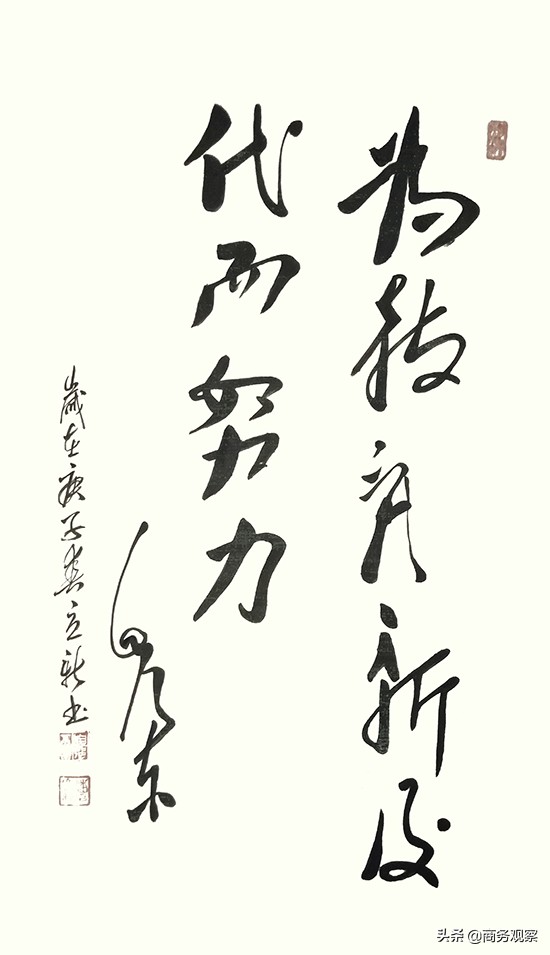 為教育新後
代而努力
毛泽东
歲在庚子立新书
头条 @商务观察